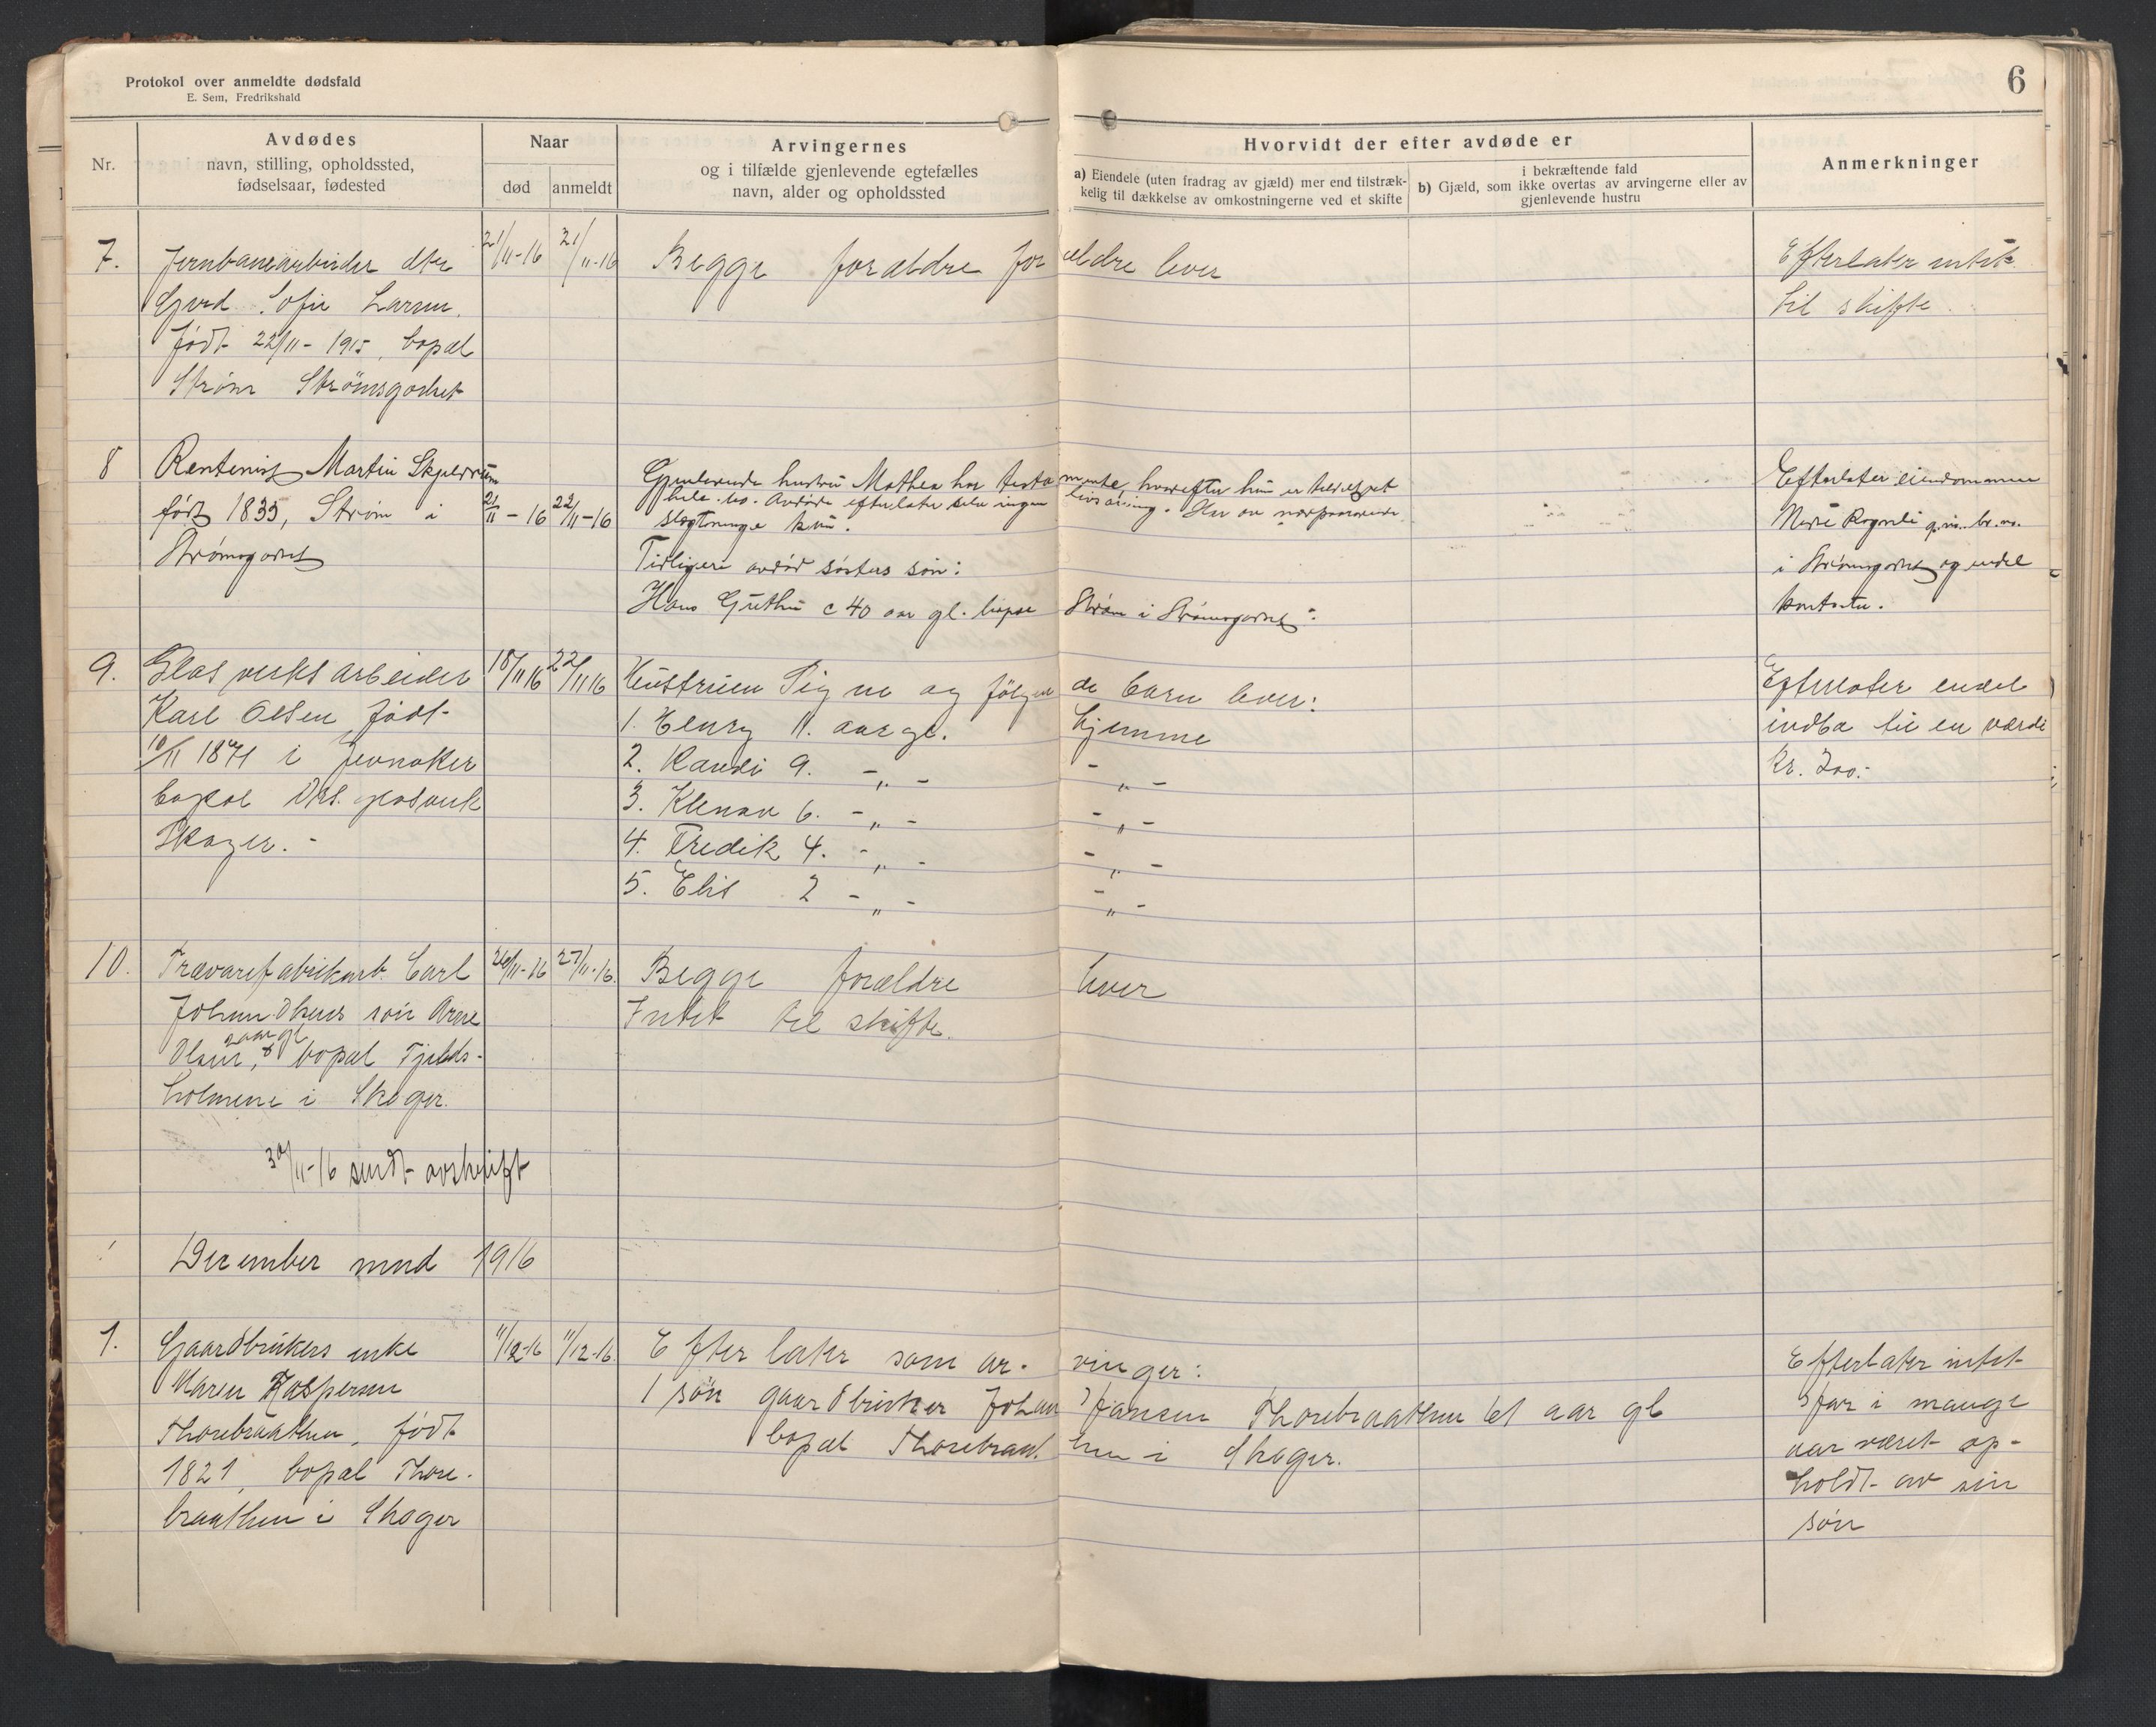 Protokol over anmeldte dødsfald
E. Sem, Fredrikshald
6
Nr.
Avdødes
navn, stilling, opholdssted,
fødselsaar, fødested
Naar
død
anmeldt
Arvingernes
og i tilfælde gjenlevende egtefælles
navn, alder og opholdssted
Hvorvidt der efter avdøde er
a) Eiendele (uten fradrag av gjæld) mer end tilstræk-
kelig til dækkelse av omkostningerne ved et skifte
i bekræftende fald
b) Gjæld, som ikke overtas av arvingerne eller av
gjenlevende hustru
Anmerkninger
7.
Jernbanearbeider dtr
Gerd Sofie Larsen,
født 22/11-1915, bopæl
Strøm Strømsgodset
21/11-16
21/11-16
Begge forældre forældre lever
Efterlater intet
til skifte.
8
Rentenist Martin Skjeldrum
født 1835, Strøm i
Strømsgodset
21/11-16
22/11-16
Gjenlevende hustru Mathea har testamente, hvorefter hun er
hele bo. Avdøde efterlater selv ingen livsarving. Har av
slægtninge kun:
Tidligere avdød søsters søn:
Hans Grethu c 40 aar gl. bopæl Strøm i Strømsgodset.
Efterlater eiendommen
Nedre g.nr. br.nr.
i Strømsgodset og endel
kontanter.
9.
Glasverksarbeider
Karl Olsen født
10/11 1871 i Jevnaker
bopæl Drs. glasverk
Skoger. -
18/11 16
22/11 16
Hustruen Signe og følgende barn lever:
1. Henry 11. aar gl. hjemme
2. Randi 9. - „ - - „ -
3. Klenav 6. - „ - - „ -
4. Fredik 4. - „ - - „ -
5. Elis 2 - „ - - „ -
Efterlater endel
indbo til en værdi
kr. 200.-
10.
Trævarefabrikarb. Carl
Johan Olsens søn Arne
2 aar gl
Olsen, bopæl Fjelds-
holmene i Skoger.
26/11-16
27/11-16.
Begge forældre lever
Intet til skifte.
30/11-16 sendt avskrift
December mnd 1916
1.
Gaardbrukers enke
Maren Kaspersen
Thorebraathen, født
1821, bopæl Thore-
braathen i Skoger
11/12-16
11/12-16.
Efterlater som arvinger:
1 søn gaardbruker Johan Jansen Thorebraathen 61 aar gl
bopæl Thorebraathen i Skoger.
Efterlater intet
har i mange
aar været op-
holdt av sin
søn